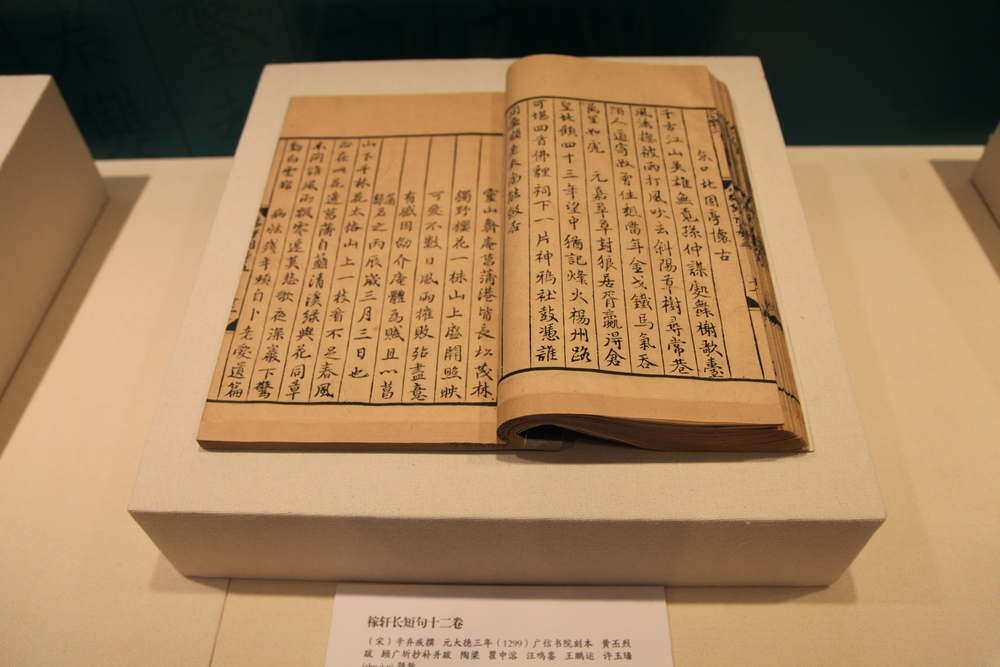 京口北固亭懷古
千古江山英雄無覓孫仲謀處舞榭歌臺
風流揔被雨打風吹去斜陽草樹尋常巷
陌人道寄奴曾住想當年金戈鐵馬氣吞
萬里如虎 元嘉草草封狼居胥贏得倉
皇北顧四十三年望中猶記烽火楊州路
可堪回首佛貍祠下一片神鴉社鼓憑誰
問廉頗老矣尚能飯否
靈山齊庵菖蒲港皆長松茂林
獨野櫻花一株山上盛開照映
可愛不數日風雨摧敗殆盡意
有感因効介庵體為賦且以菖
蒲緑名之丙辰歲三月三日也
山下千林花太俗山上一枝看不足春風
正在此花邊菖蒲自蘸清溪緑與花同草
木問誰風雨飄零速莫悲歌夜深巖下驚
動白雲宿 病怯殘年頻自卜老愛遺篇
稼轩长短句十二卷
（宋）辛弃疾撰 元大德三年（1299）广信书院刻本 黄丕烈
跋 顾广圻抄补并跋 陶梁 瞿中溶 汪鸣銮 王鹏运 许玉瑑